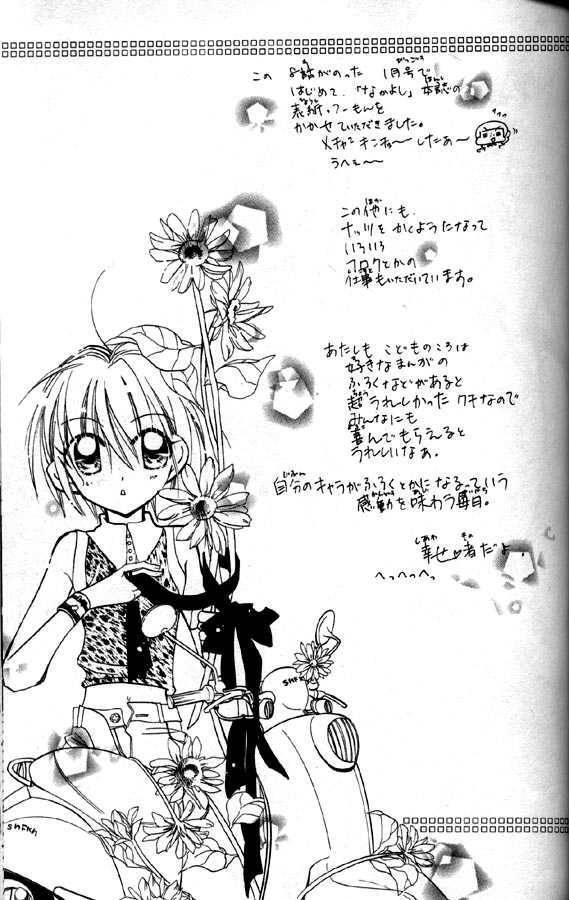 この 8話がのった 1月号で
はじめて、「なかよし」本誌の
表紙・ふーもんを
かかせていただきました。
メチャ キンチョーしたぁ〜
うへぇ〜
この他にも、
ナッツをかくようになって
いろいろ
フロクとかの
仕事もいただいています。
あたしも こどものころは
好きなまんがの
ふろくなどがあると
超うれしかったクチなので
みんなにも
喜んでもらえると
うれしいなぁ。
自分のキャラがふろくとかになるっていう
感動を味わう毎日。
幸せ者だよ
へっへっへっ
SHFKH